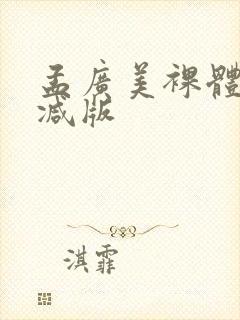 孟廣美裸體
减版
淇霏